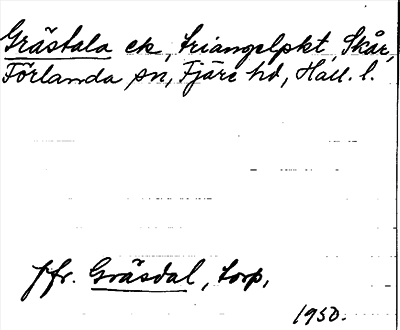 Gråstala ek, triangelpkt, Skår,
Förlanda sn, Fjäre hd, Hall. l.
Jfr. Gråsdal, torp.
1950.